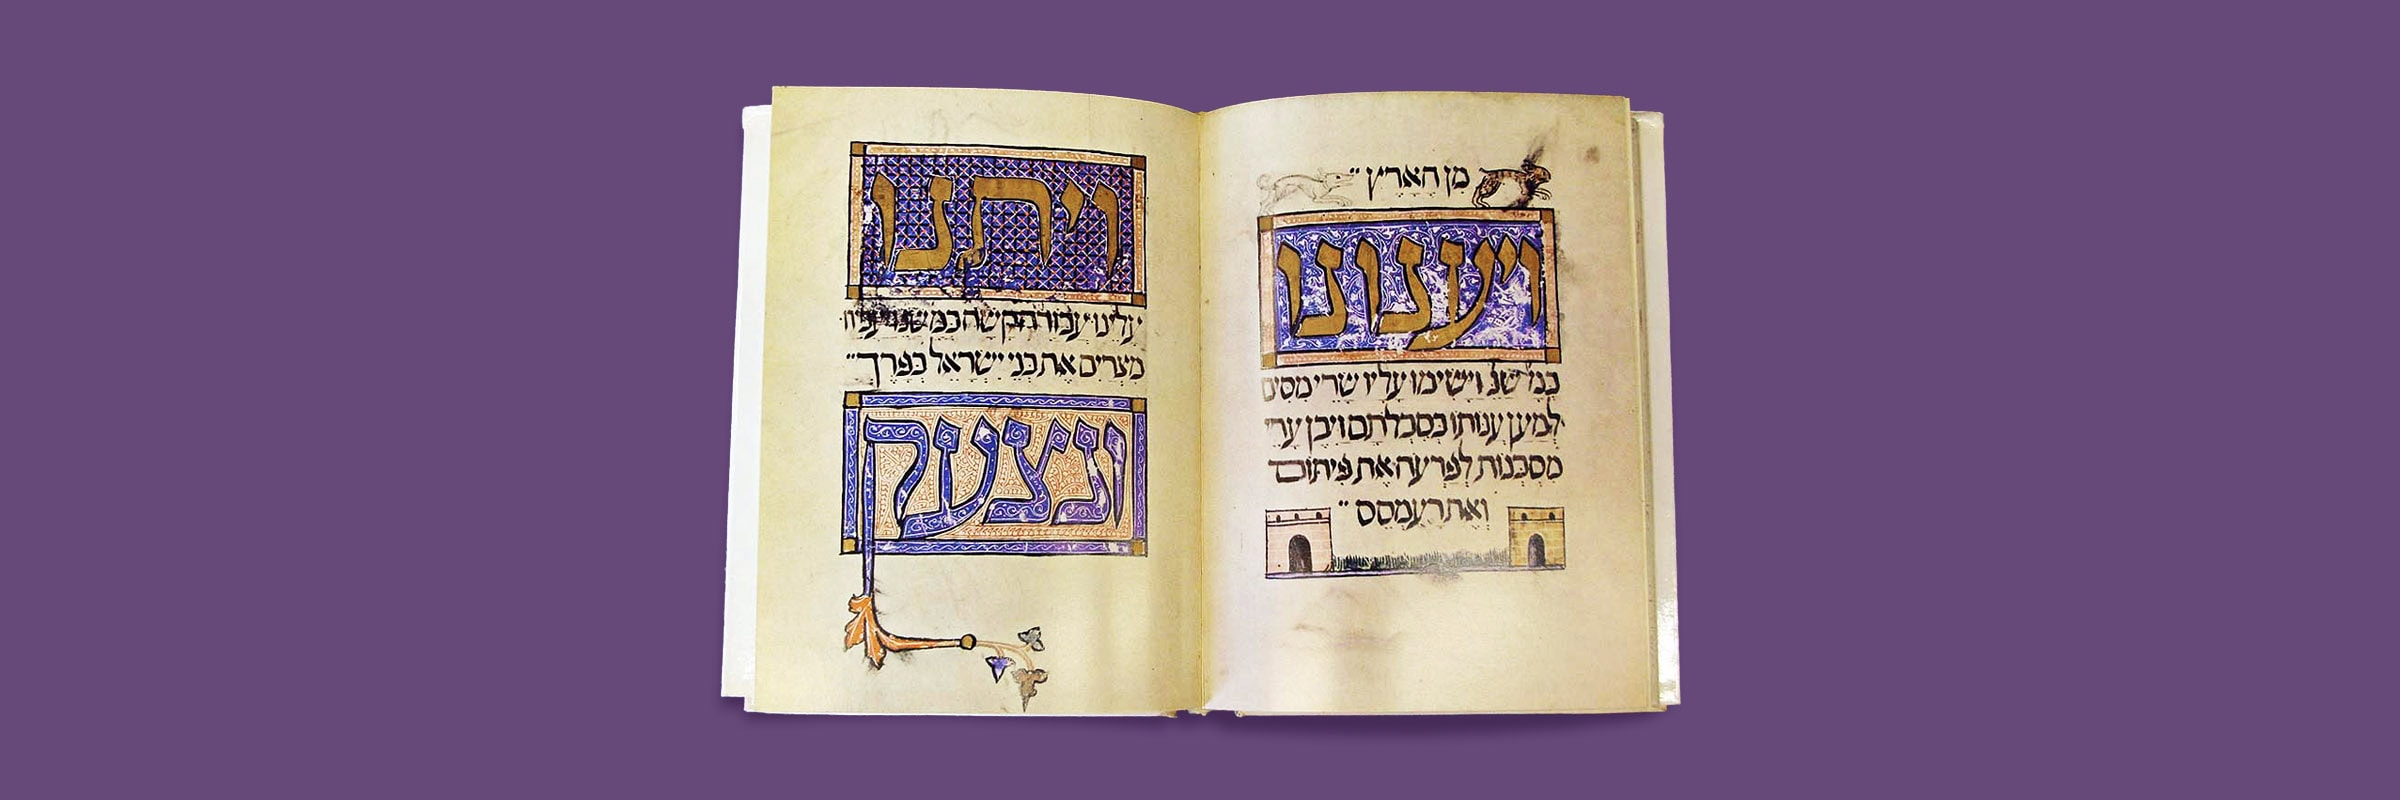 מן הארץ
ויענונו
כמ' שנ' וישימו עליו שרי מסים
למען ענותו בסבלתם ויבן ערי
מסכנות לפרעה את פיתום
ואת רעמסס
ויתנו
עלינו עבודה קשה כמ' שנ'
מצרים את בני ישראל בפרך
ונצעק